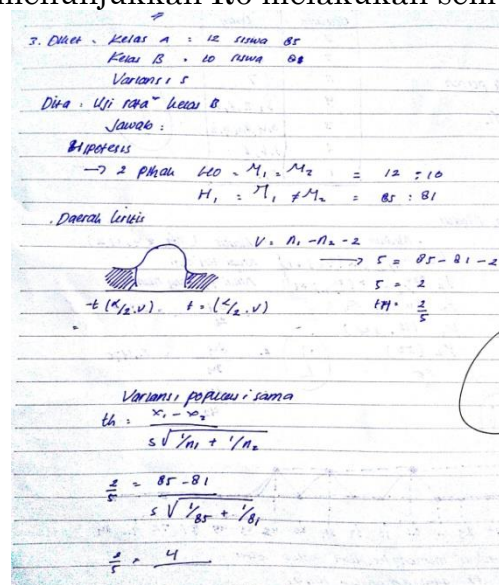 menunjukkan R6 melakukan sem
3. Diket : Kelas A : 12 siswa 85
Kelas B : 10 siswa 81
Varians : 5
Dita : Uji rata² kelas B
Jawab :
Hipotesis
→ 2 pihak H0 = M1 = M2 = 12 : 10
H1 : M1 ≠ M2 = 85 : 81
. Daerah kritis
V = n1 - n2 - 2
→ 5 = 85 - 81 - 2
5 = 2
2/5
-t (α/2, v) t = (α/2, v)
Varians, populasi sama
th : x1 - x2 / s √ 1/n1 + 1/n2
2/5 = 85 - 81 / 5 √ 1/85 + 1/81
2/5 = 4